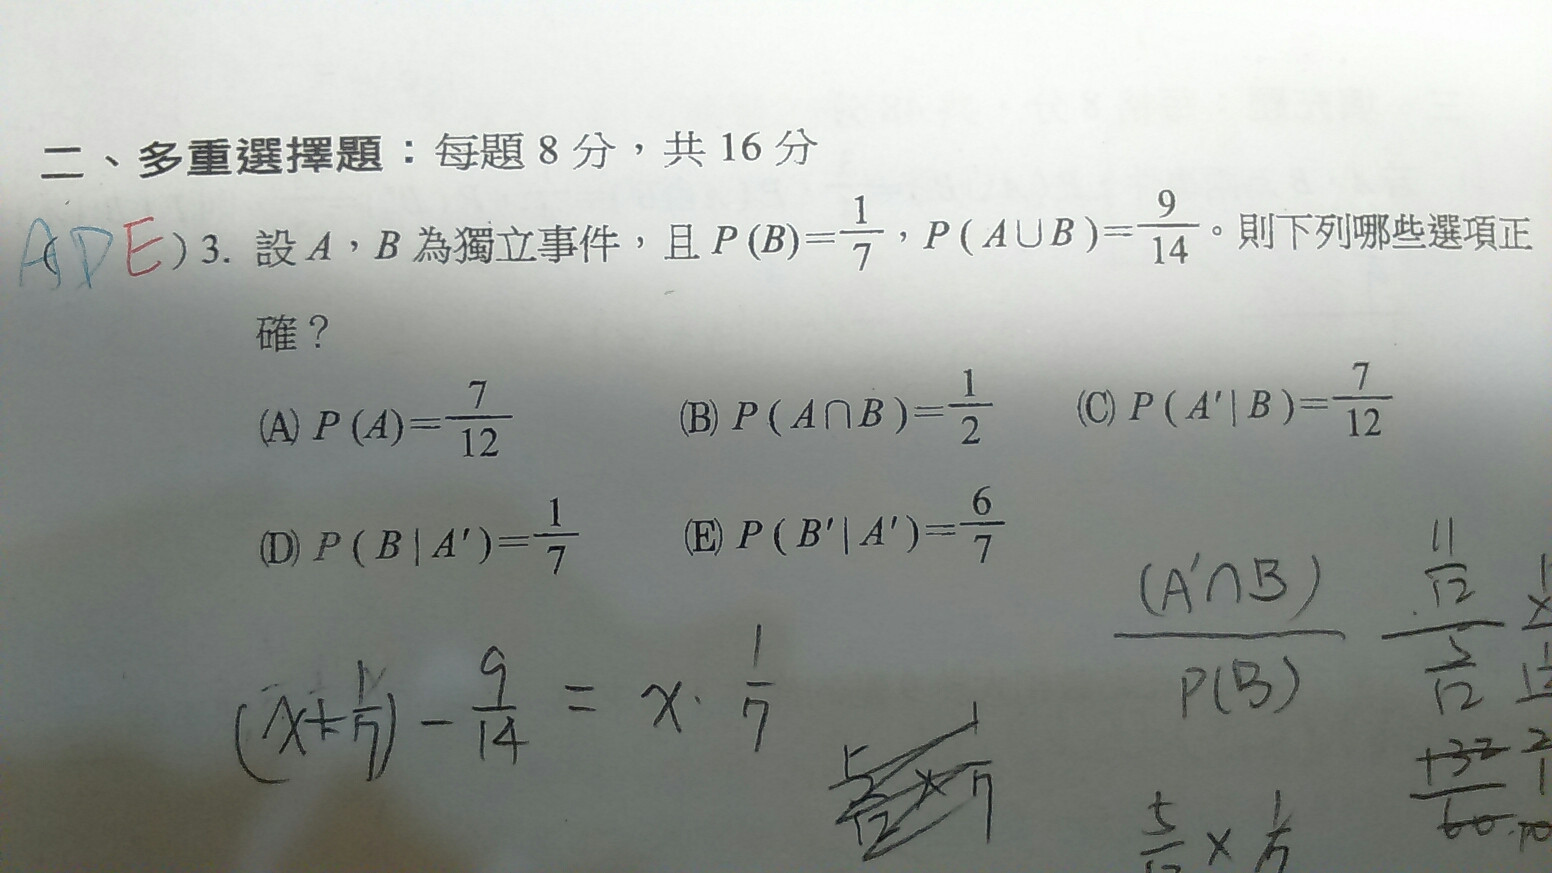 二、多重選擇題：每題 8 分，共 16 分
ADE ) 3. 設 A，B 為獨立事件，且 P (B)=1/7，P ( A∪B )=9/14。則下列哪些選項正
確？
(A) P (A)=7/12 (B) P ( A∩B )=1/2 (C) P ( A′| B )=7/12
(D) P ( B | A′ )=1/7 (E) P ( B′| A′ )=6/7
(A′∩B)/P(B)
(x+1/7) − 9/14 = x · 1/7
5/12 × 1/7